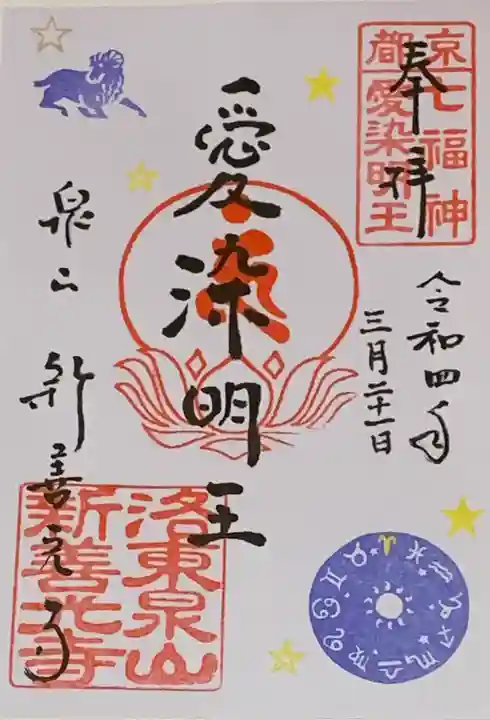 奉拝
京都七福神
愛染明王
令和四年
三月二十一日
愛染明王
泉山 新善光寺
洛東泉山
新善光寺
♈♉♊♋♌♍♎♏♐♑♒♓